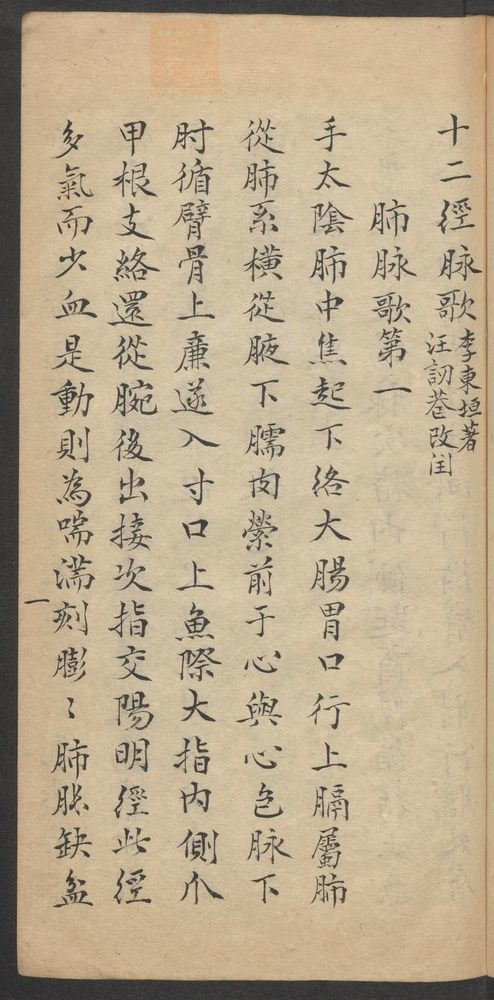 十二經脉歌 李東垣著
汪訒菴改闰
肺脉歌第一
手太陰肺中焦起下络大腸胃口行上膈屬肺
從肺系橫從腋下臑内縈前于心與心包脉下
肘循臂骨上廉遂入寸口上魚際大指内側爪
甲根支絡還從腕後出接次指交陽明經此經
多氣而少血是動則為喘滿刻膨〻肺脹缺盆
一